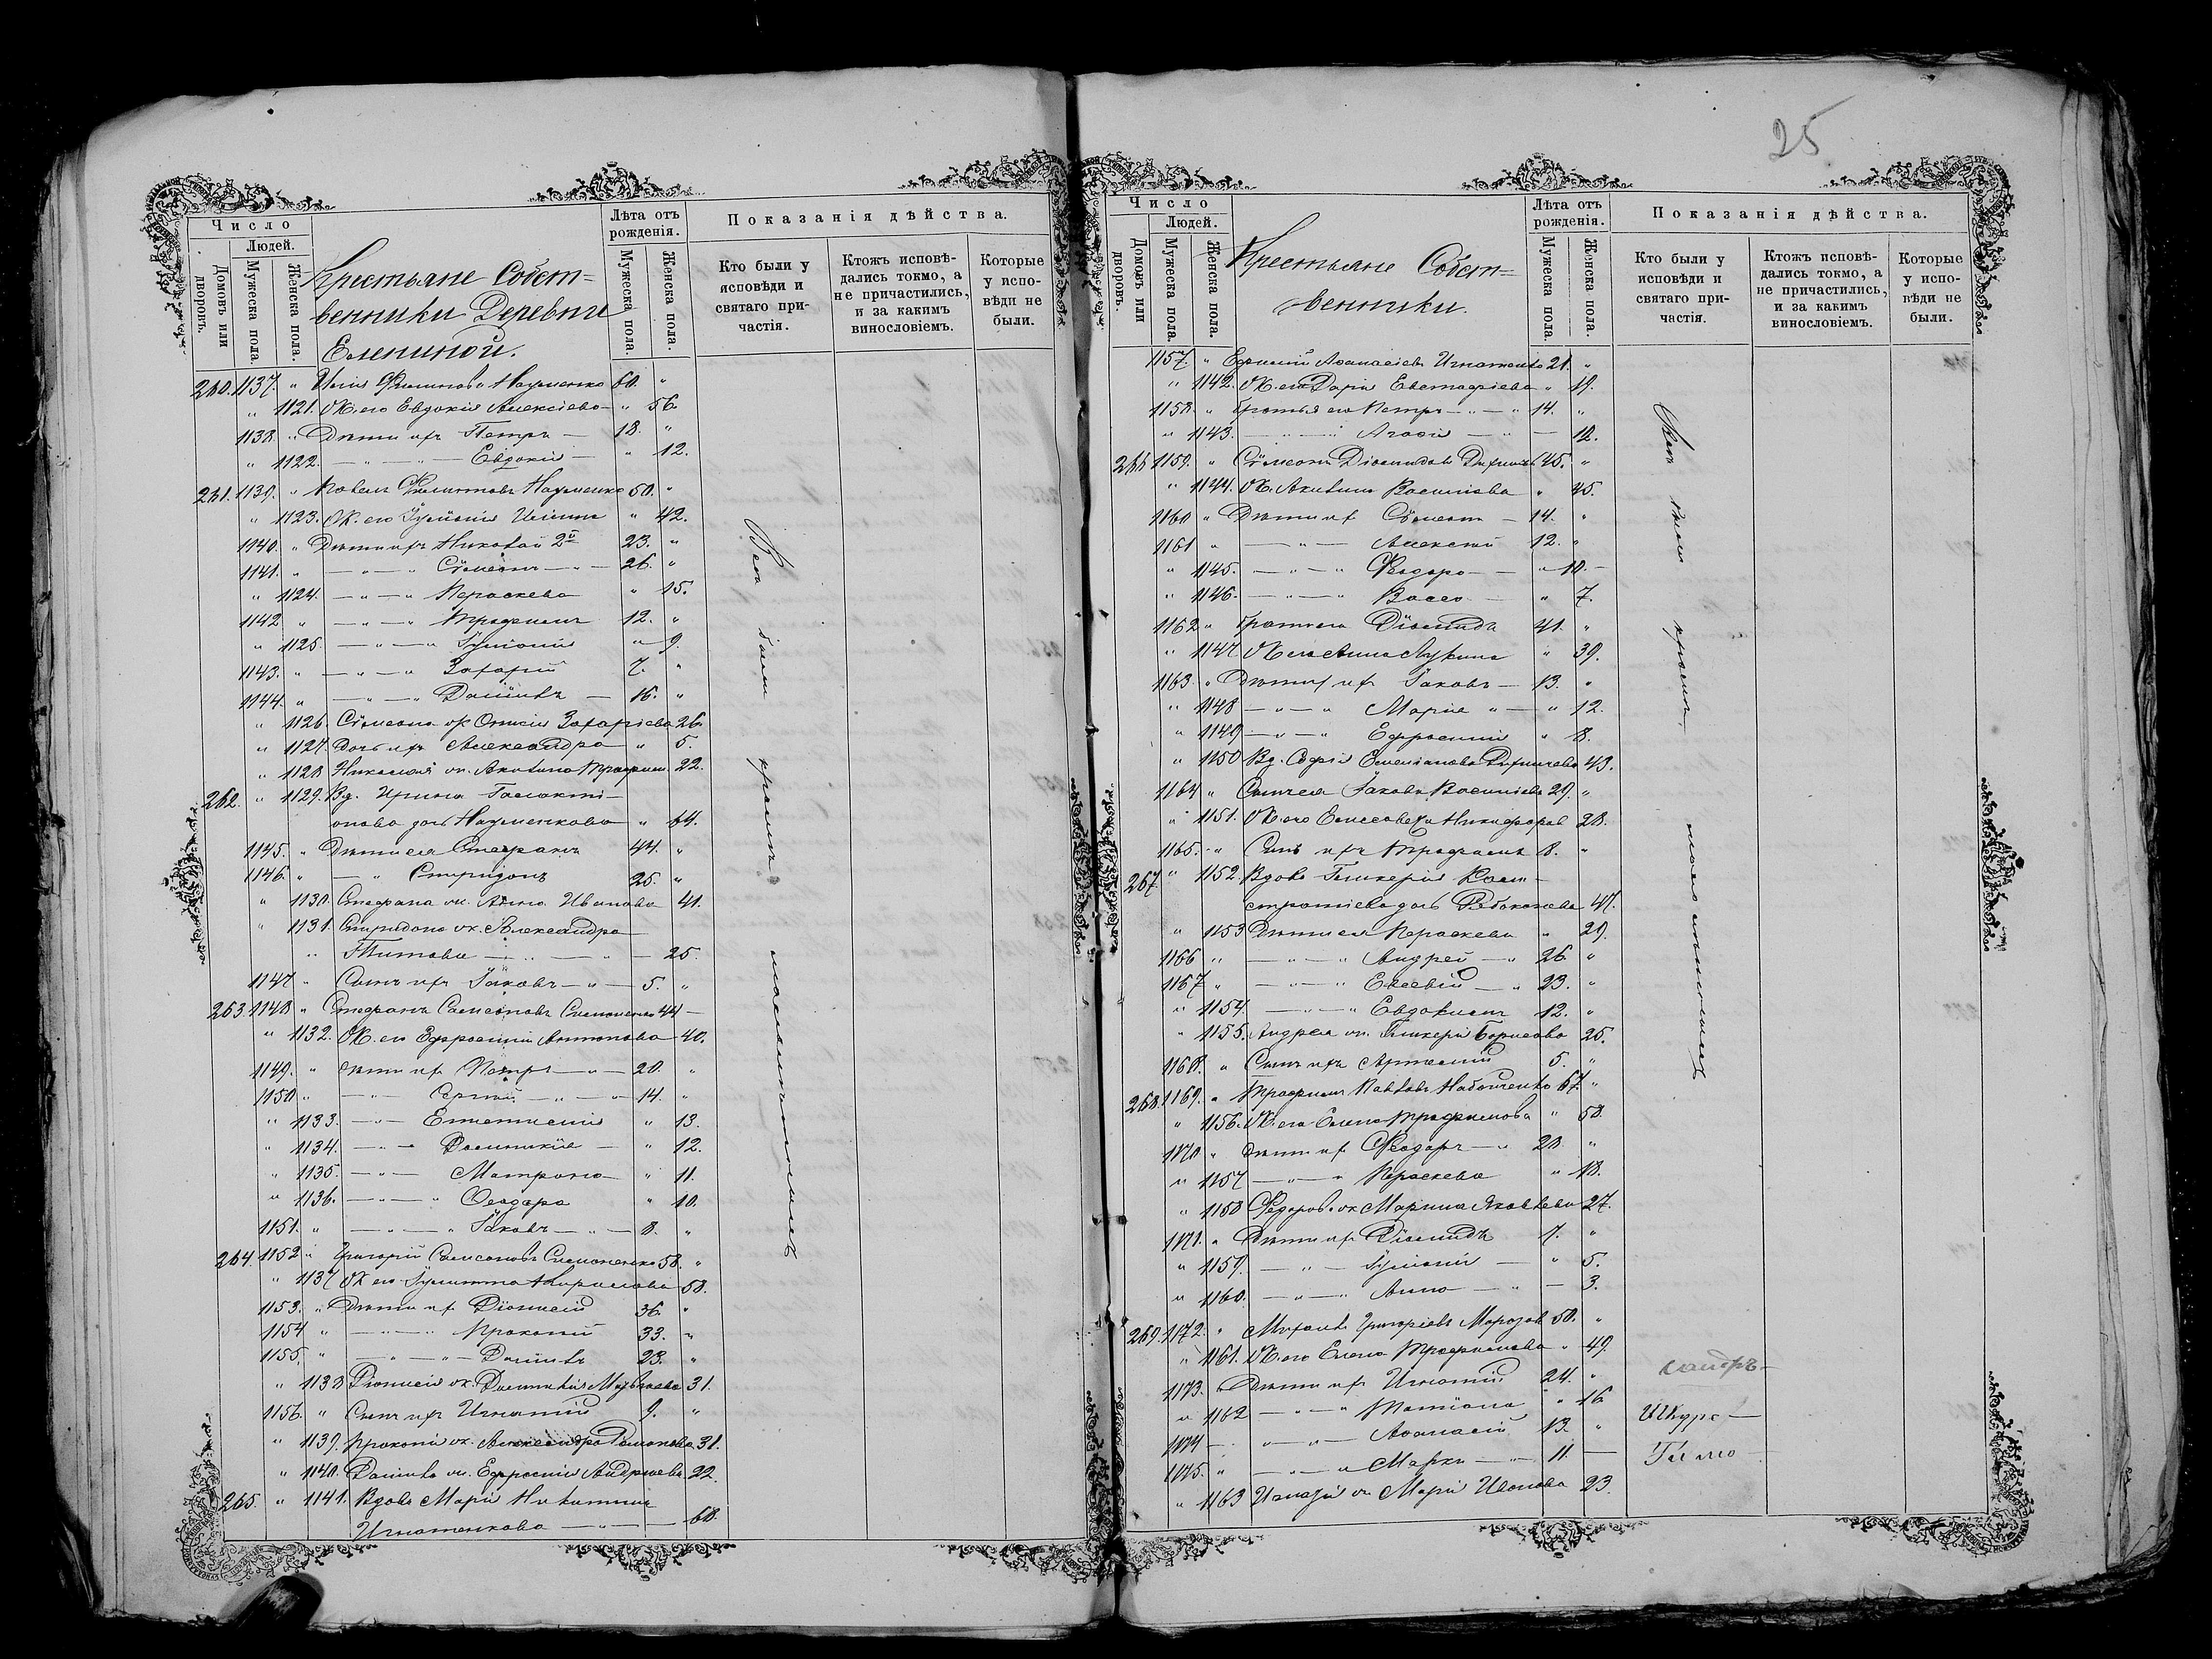 25
Число
Людей.
Домовъ или дворовъ.
Мужеска пола.
Женска пола.
Крестьяне Собст=
венники Деревни
Елениной.
Лѣта отъ рожденія.
Мужеска пола.
Женска пола.
Показанія дѣйства.
Кто были у исповѣди и святаго причастія.
Ктожъ исповѣдались токмо, а не причастились, и за какимъ винословіемъ.
Которые у исповѣди не были.
260. 1137. " Филиповъ Науменко 60. "
" 1121. Ж. его Евдокія Алексіева " 56.
1138. " Дѣти ихъ Петръ — 18. "
" 1122. — " — Евдокія — " 12.
261. 1139. " Павелъ Филиповъ Науменко 50. "
" 1123. Ж. его Іуліанія " 42.
1140. " Дѣти ихъ Николай 2й 23. "
1141. " — " — " Сѵмеонъ — " — 26. "
" 1124. — " — " Параскева " 15.
1142 " — " — " Трофимъ 12. "
" 1125. — " — " Іуліанія " 9.
1143. " — " — " Захарій 7. "
1144. " — " — " Даніилъ — 16. "
" 1126. Сѵмеона ж. Захаріева 26.
" 1127. Дочь ихъ Александра — " 5.
" 1128 Николая ж. Акилина Трофим. 22.
262. " 1129. Вд. Ирина Галакті-
онова дочь Науменкова " 64.
1145. " Дѣти ея Стефанъ 44. "
1146. " — " Спиридонъ 25. "
" 1130. Стефана ж. Анна Иванова 41.
" 1131. Спиридона ж. Александра
" Титова — " — " — 25.
1147 " Сынъ ихъ Іаковъ — " — 5. "
263. 1148 " Стефанъ Самсоновъ Симоненко 44 —
" 1132. Ж. его Ефросинія Антонова 40.
1149. " Дѣти ихъ Петръ — " — 20. "
1150 " — " — Сергій — " — " 14. "
" 1133. — " — " 13.
" 1134. — " — Домникія — " 12.
" 1135. — " — Матрона — " 11.
" 1136. — " — " Феодора " 10.
1151. " — " — " Іаковъ — " — 8. "
264. 1152 " Григорій Самсоновъ Симоненко 58. "
" 1137 Ж. его Іулитта Кирилова 58.
1153. " Дѣти ихъ Діонисій 36. "
1154 " — " — " Прокопій 33. "
1155. " — " — " — Даніилъ 23. "
" 1138 Діонисія ж. Домникія 31.
1156. " Сынъ ихъ Игнатій 9. "
" 1139. Прокопія ж. Александра Романова 31.
" 1140. Даніила ж. Ефросинія Андреева 22.
265. " 1141. Вдова Марія Никитина
Игнатенкова — " — 68.
Всѣ были кромѣ малолѣтнихъ
Число
Людей.
Домовъ или дворовъ.
Мужеска пола.
Женска пола.
Крестьяне Собст=
венники.
Лѣта отъ рожденія.
Мужеска пола
Женска пола.
Показанія дѣйства.
Кто были у исповѣди и святаго причастія.
Ктожъ исповѣдались токмо, а не причастились, и за какимъ винословіемъ.
Которые у исповѣди не были.
1157. " Афанасіевъ Игнатенко 21. "
" 1142. Ж. его Дарія Евстафіева " 19.
1158. " Братья его Петръ — " — " 14. "
" 1143. — " — " Агафія — " — 12.
266 1159. " Сѵмеонъ Діомидовъ 45. "
" 1144. Ж. Акилина Василіева " 45.
1160 " Дѣти ихъ Сѵмеонъ — 14. "
1161 " — " — Алексій 12. "
" 1145. — " — " Феодора — " 10. —
" 1146. — " — " Васса — " 7.
1162 " Братъ его Діомидъ 41. "
" 1147. Ж. его Анна Лукина " 39.
1163 " Дѣти ихъ Іаковъ — 13. "
" 1148 — " — " Марія " — " 12.
" 1149 — " — " Ефросинія " 8.
" 1150 Вд. Софія Емеліанова 43.
1164 " Сынъ ея Іаковъ Василіевъ 29. "
" 1151. Ж. его Елисавета Никифоров 28.
1165. " Сынъ ихъ Трофимъ 8. "
267. " 1152. Вдова Гликерія Кали-
стратіева дочь 47.
" 1153 Дѣти ея Параскева " 29.
1166 " — " — " Андрей — " 26 "
1167 " — " — " Евсевій — " 23. "
" 1154. — " — " Евдокимъ 12. "
" 1155. Андрея ж. Гликерія Борисова 25.
1168. " Сынъ ихъ Артемій 5. "
268. 1169. " Трофимъ Павловъ 67. "
" 1156. Ж. его Елена Трофимова " 58.
1170 " Дѣти ихъ Феодоръ — " 28 "
" 1157 — " — " Параскева " 18.
" 1158 Федорова ж. Марина Яковлева 27.
1171. " Дѣти ихъ Діомидъ 7. "
" 1159. — " — Іуліанія — " 5.
" 1160. — " — " Анна — " — 3.
269. 1172. " Михаилъ Григоріевъ Морозов 50. "
" 1161. Ж. его Елена Трофимова " 49.
1173. " Дѣти ихъ Игнатій 24. "
" 1162 — " — " Татіана " 16
1174 — " — " — Афанасій 13. "
1175. " — " — " Маркъ — " — 11. —
" 1163 Игнатія ж. Марія Иванова 23.
Всѣ были кромѣ малолѣтнихъ